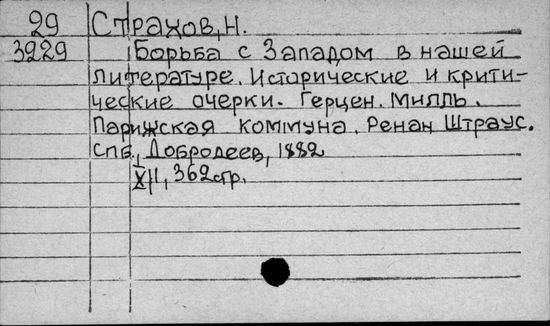 29 Страхов, Н.
3229 Борьба с Западом в нашей
литературе. Исторические и крити-
ческие очерки. Герцен. Милль.
Парижская коммуна. Ренан Штраус.
Спб., Добродеев, 1882
XII, 362стр.